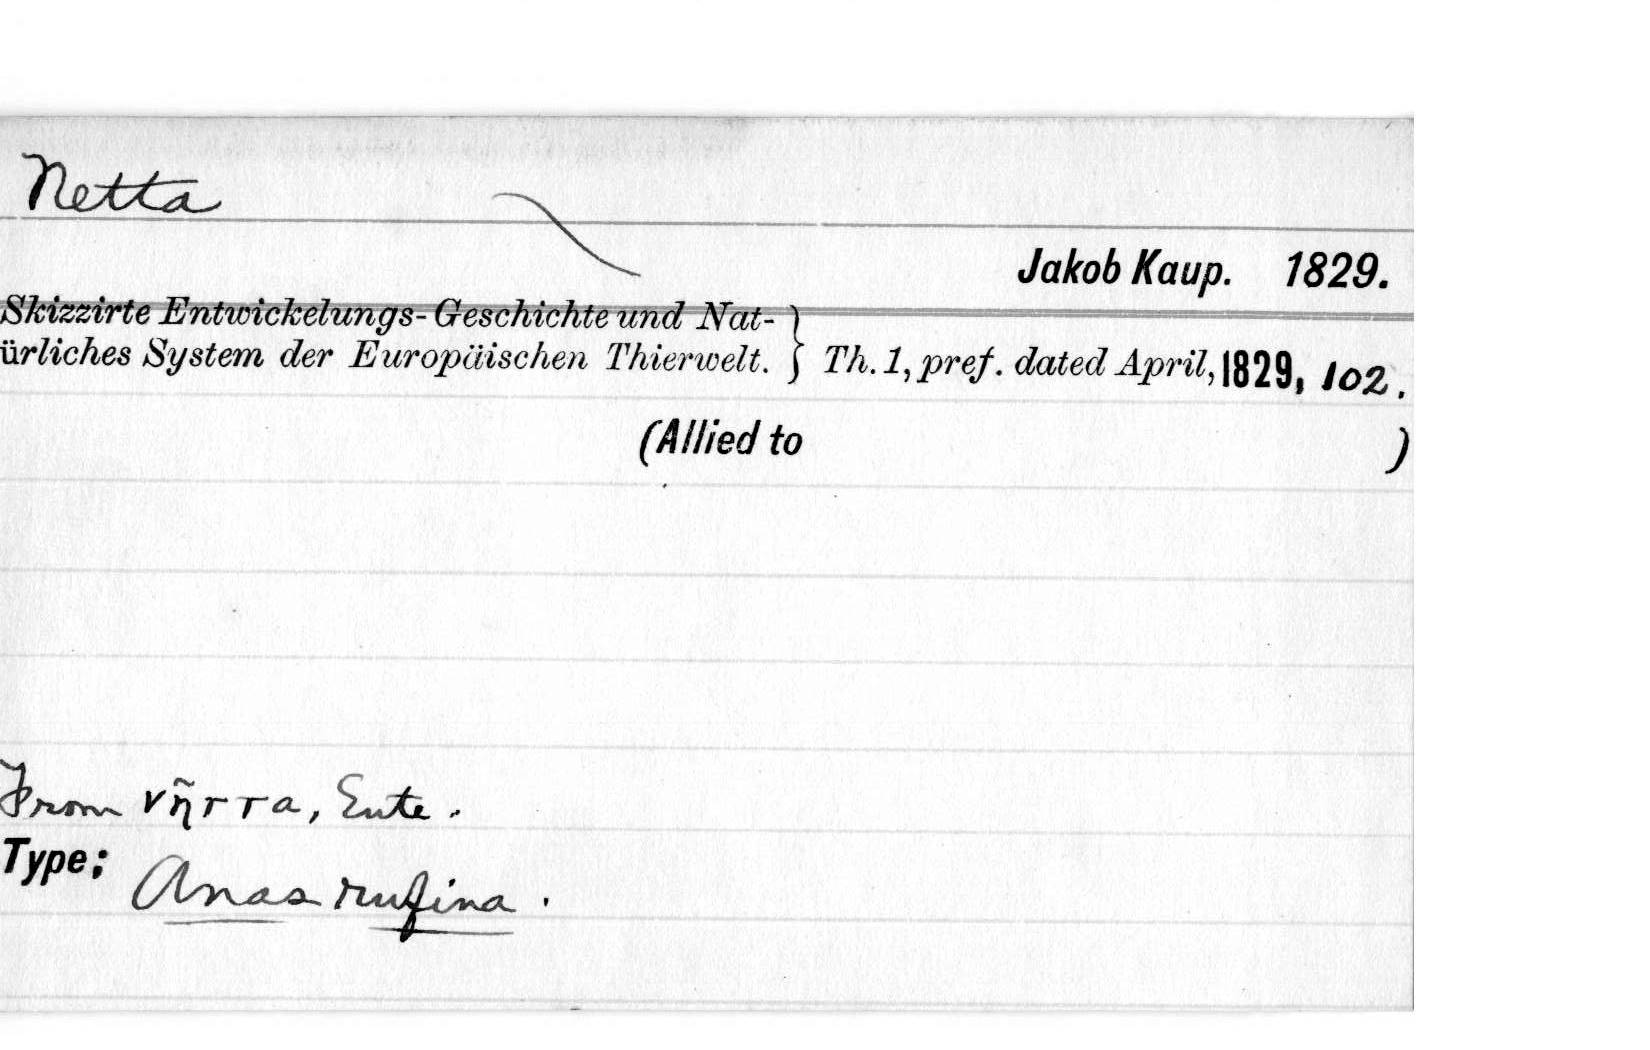 Netta
Jakob Kaup. 1829.
Skizzirte Entwickelungs-Geschichte und Nat-
ürliches System der Europäischen Thierwelt. } Th. 1, pref. dated April, 1829, 102.
(Allied to )
From νῆττα, Ente.
Type; Anas rufina.